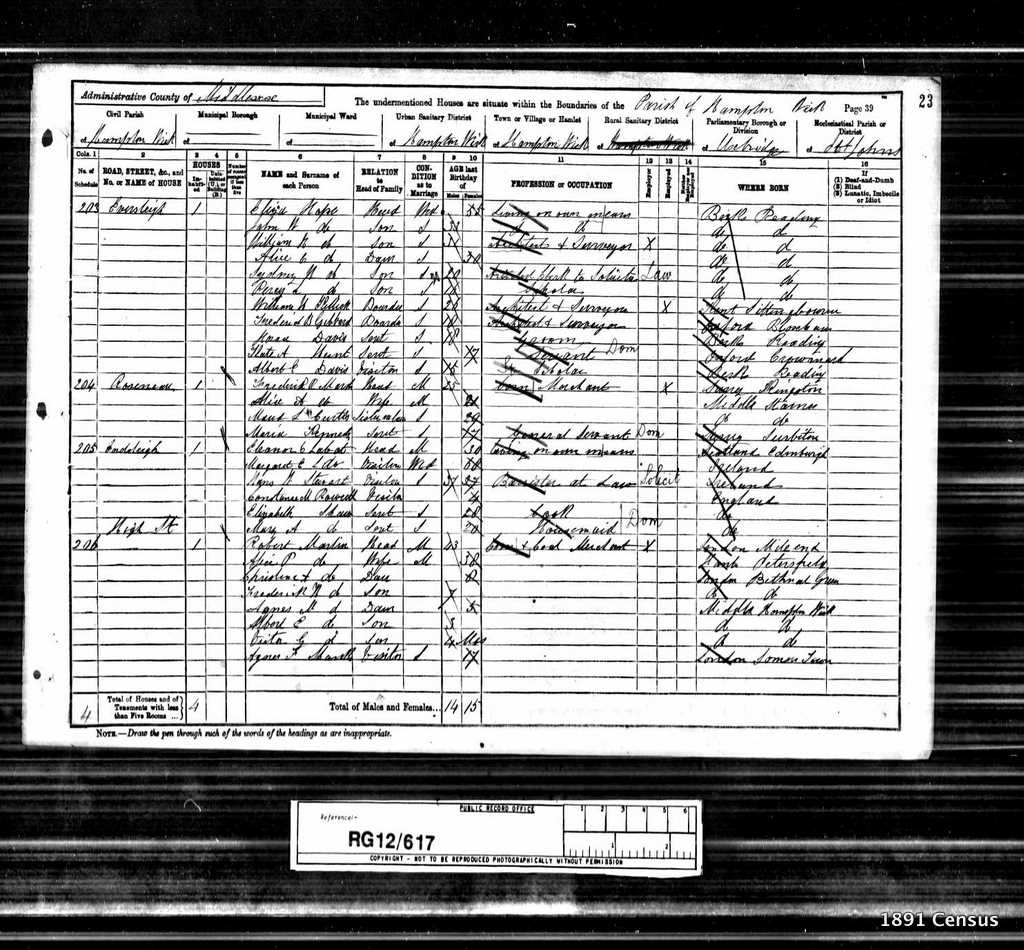 Administrative County of Middlesex
The undermentioned Houses are situate within the Boundaries of the Parish of Hampton Wick
Page 39
23
Civil Parish
Municipal Borough
Municipal Ward
Urban Sanitary District
Town or Village or Hamlet
Rural Sanitary District
Parliamentary Borough or Division
Ecclesiastical Parish or District
of Hampton Wick of of of Hampton Wick of Hampton Wick of Hampton Wick of Uxbridge of St Johns
Cols. 1 2 3 4 5 6 7 8 9 10 11 12 13 14 15 16
No. of Schedule
ROAD, STREET, &c., and No. or NAME of HOUSE
HOUSES
Inhabited
Uninhabited (U.), or Building (B.)
Number of rooms occupied if less than five
NAME and Surname of each Person
RELATION to Head of Family
CONDITION as to Marriage
AGE last Birthday of
Males Females
PROFESSION or OCCUPATION
Employer
Employed
Neither Employer nor Employed
WHERE BORN
If
(1) Deaf-and-Dumb
(2) Blind
(3) Lunatic, Imbecile or Idiot
203 Eversleigh 1 Eliza Wid 55 Living on own means Berks Reading
John W do Son S do do
William do Son S 31 Architect & Surveyor X do do
Alice E do Daur S do do
Sydney W do Son S Articled Clerk to Solicitor Law do do
Percy do Son S Scholar do do
William Boarder S Architect & Surveyor X Kent Sittingbourne
Frederick Boarder S Architect & Surveyor Oxford Bloxham
Davis Servt S 18 Groom Berks Reading
Kate A Servt S 17 Servant Dom Oxford
Albert C Davis Visitor S 15 Scholar Berks Reading
204 1 Frederick Head M 25 Corn Merchant X Surrey Kingston
Alice A do Wife M Middlx Staines
Maud L Curtis Sister in law S 29 do do
Maria Kennedy Servt S 17 General Servant Dom Surrey Surbiton
205 Endsleigh 1 Eleanor C Head M 30 Living on own means Scotland Edinburgh
Margaret E Visitor Wid Ireland
Stewart Visitor S Barrister at Law Solicit Ireland
Constance M Visitor 4 England
Elizabeth Shaw Servt S 28 Cook Dom do
Mary A do Servt S 20 Housemaid do
High St
206 1 Robert Martin Head M 43 Corn & Coal Merchant X London Mile end
Alice do Wife M 38 Hants Petersfield
Christina A do Daur London Bethnal Green
Frederick W do Son 7 do do
Agnes M do Daur 5 Middlx Hampton Wick
Albert E do Son 3 do do
Victor G do Son 4 Mos do do
Agnes F Visitor S 17 London Somers Town
4
Total of Houses and of Tenements with less than Five Rooms ... 4
Total of Males and Females... 14 15
NOTE.—Draw the pen through such of the words of the headings as are inappropriate.
PUBLIC RECORD OFFICE
Reference:-
RG12/617
1 2 3 4 5 6
1 2
COPYRIGHT - NOT TO BE REPRODUCED PHOTOGRAPHICALLY WITHOUT PERMISSION
1891 Census